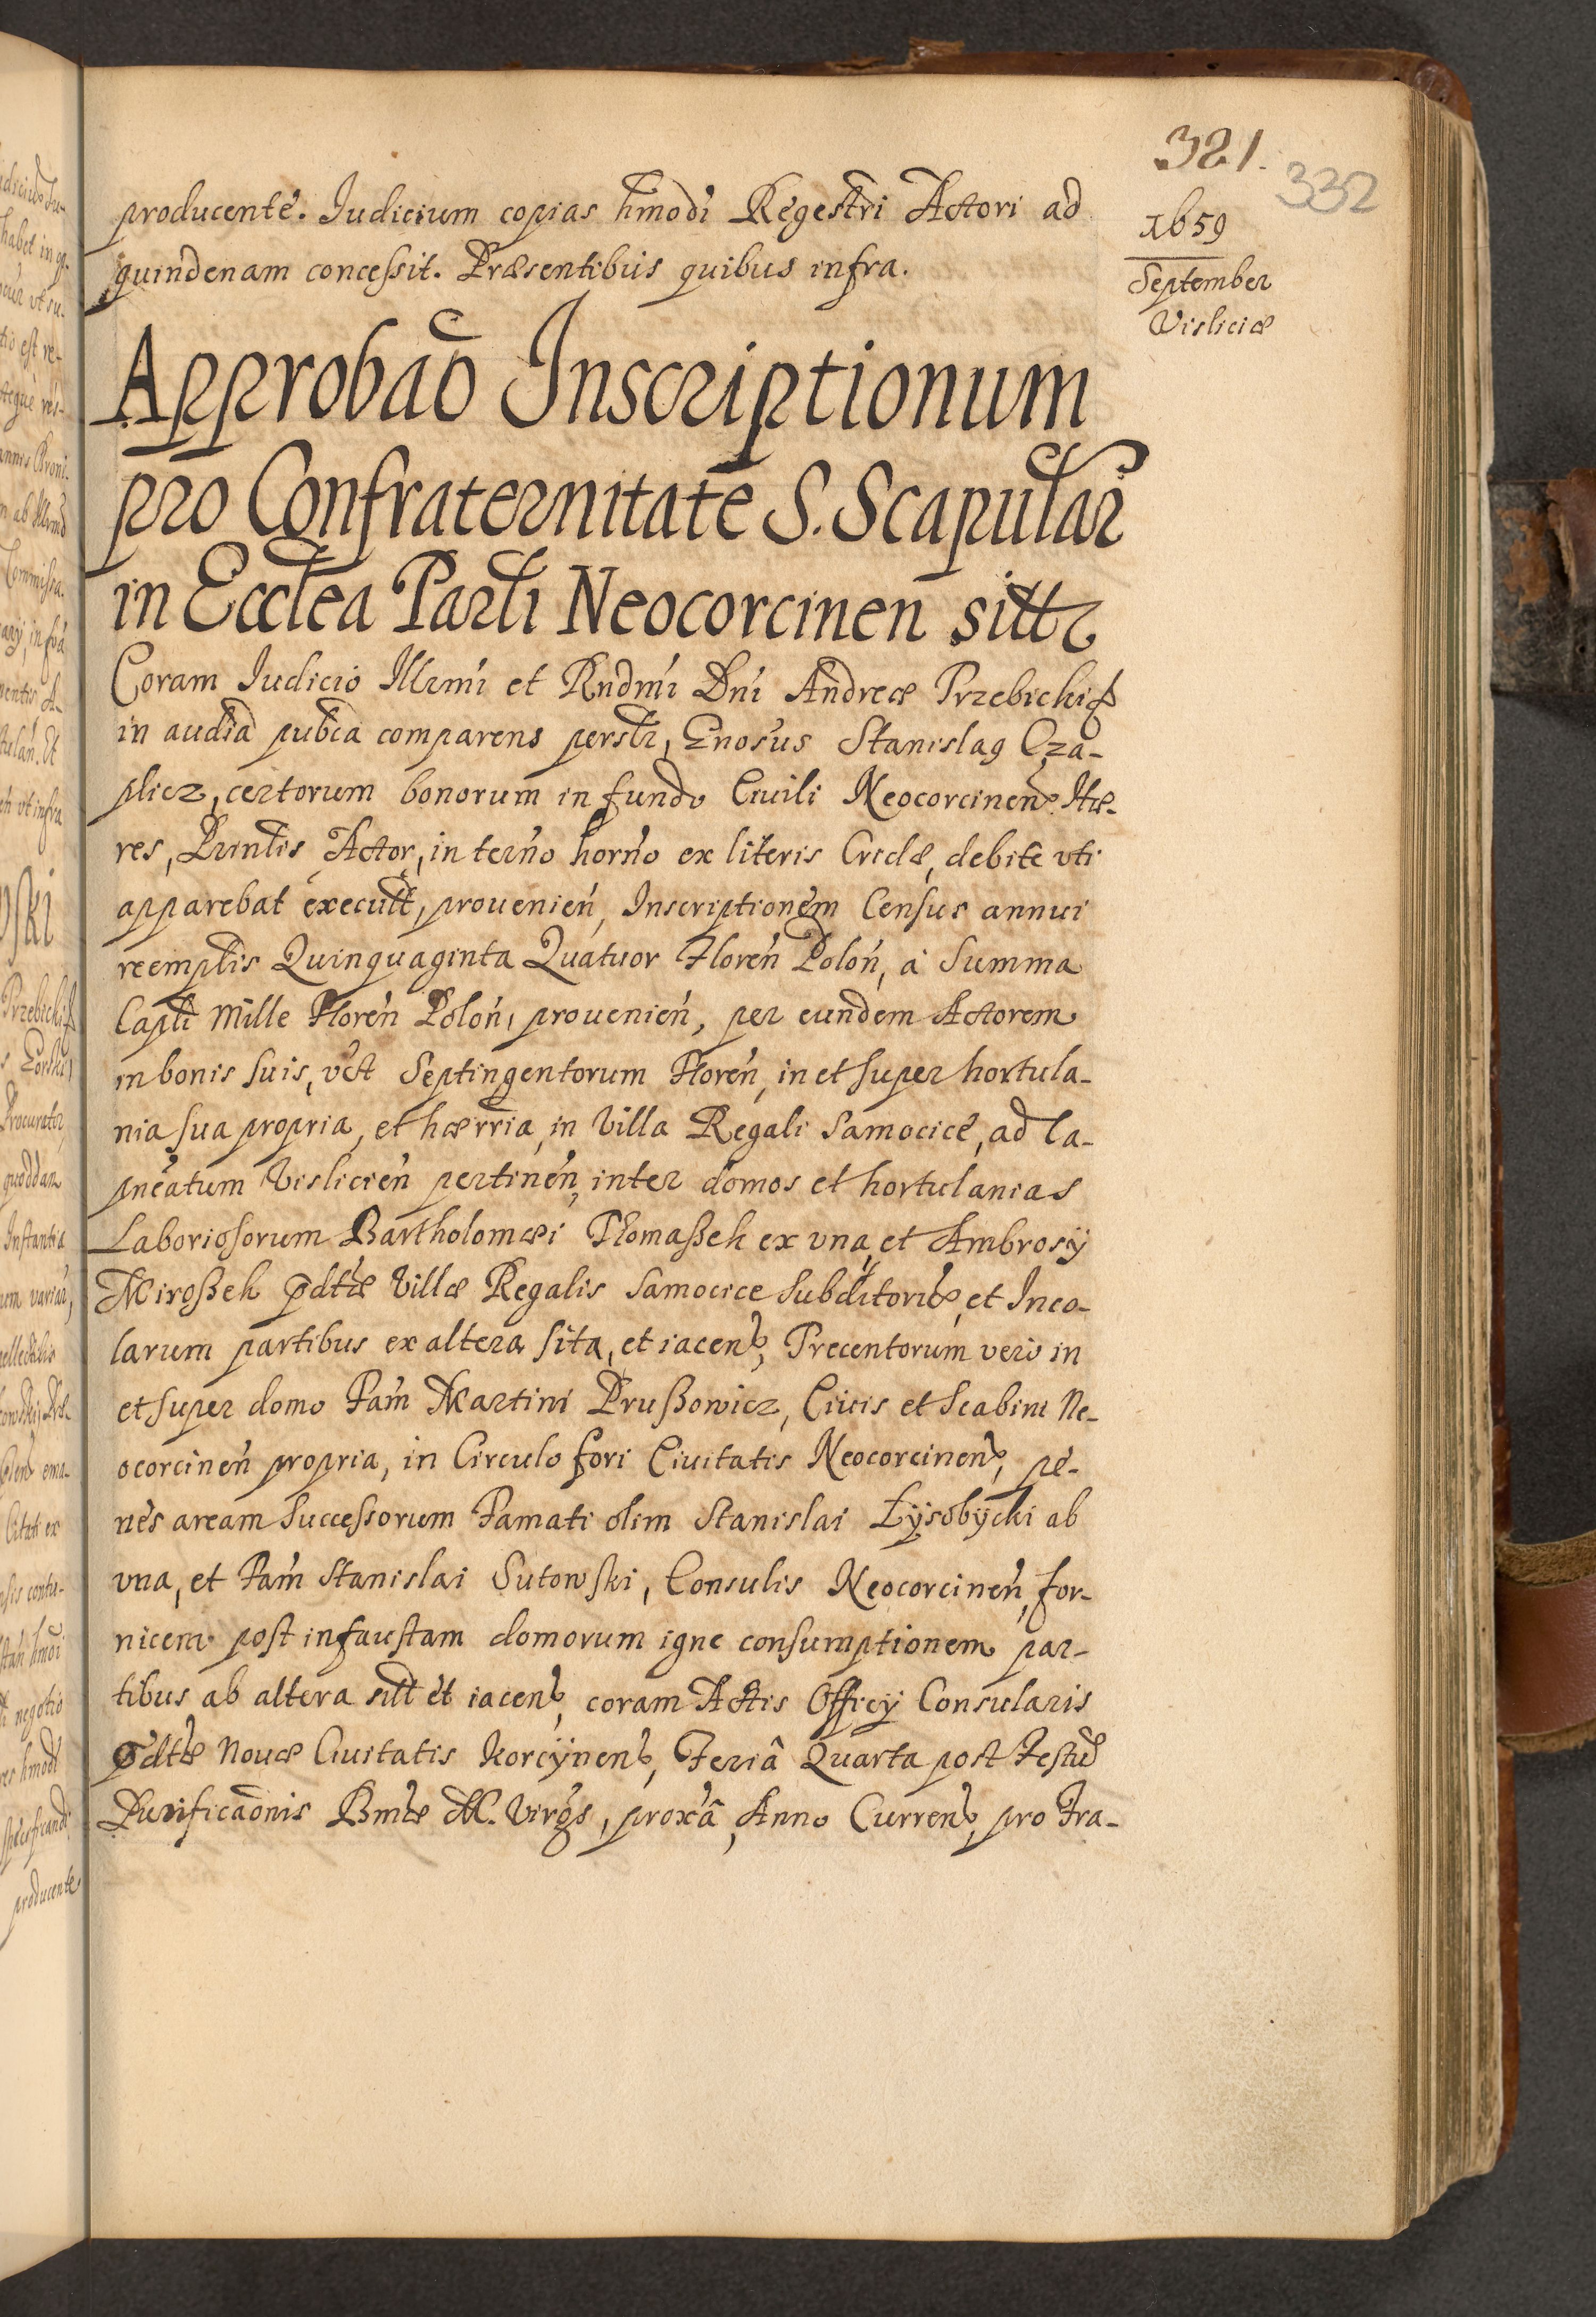 321.
332
1659
September
Visliciæ
producente. Iudicium copias hmodi Regestri Actori ad
quindenam concessit. Præsentibus quibus infra.
Approbaõ Inscriptionum
pro Confraternitate S. Scapular
in Ecclea Parli Neocorcinen sitt
Coram Iudicio Illrmi et Rndmi Dni Andreæ Przebicki
in audia publca comparens persltr, Gnosus Stanislag Cza-
plicz, certorum bonorum in fundo Ciuili Neocorcinen Hæ-
res, Prinlis Actor, in terno horno ex literis Cridæ, debite vti
apparebat execult, prouenien, Inscriptionem Census annui
reemplis Quinquaginta Quatuor Floren Polon, á Summa
Capli Mille Floren Polon, prouenien, per eundem Actorem
in bonis suis, vct Septingentorum Floren, in et super hortula-
nia sua propria, et hærria, in Villa Regali Samocice, ad Ca-
pneatum Vislicien pertinen, inter domos et hortulanias
Laboriosorum Bartholomæi Thomaßek ex vna, et Ambrosÿ
Miroßek pdtæ Villæ Regalis Samocice Subditoru, et Inco-
larum partibus ex altera sita, et iacen, Trecentorum vero in
et super domo Fam Martini Prußowicz, Ciuis et Scabini Ne-
ocorcinen propria, in Circulo fori Ciuitatis Neocorcinen, pe-
nes aream Successorum Famati olim Stanislai Łÿsobÿcki ab
vna, et Fam Stanislai Sutowski, Consulis Neocorcinen, for-
nicem post infaustam domorum igne consumptionem par-
tibus ab altera sitt et iacen, coram Actis Officÿ Consularis
pdtæ Nouæ Ciuitatis Korcÿnen, Feriâ Quarta post Festu
Purificaõnis Bmæ M. Virgs, proxâ, Anno Curren, pro Fra-